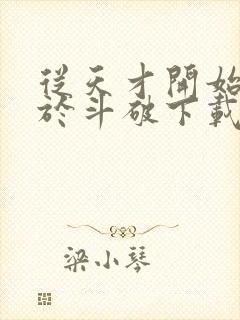 從天才開始
於斗破下載
梁小琴